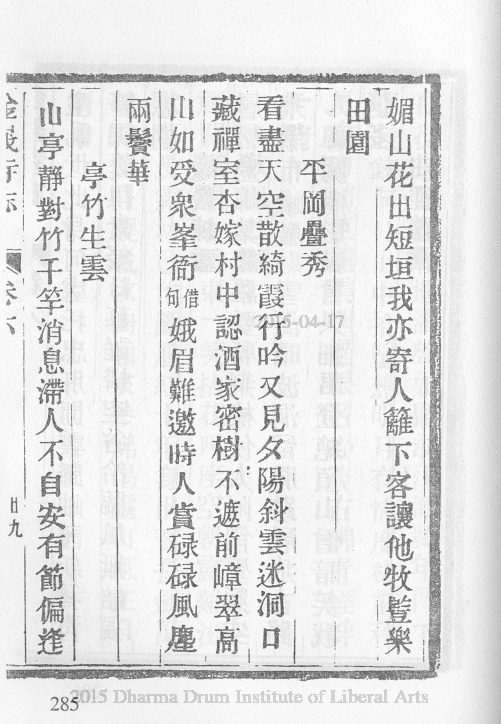 媚山花出短垣我亦寄人籬下客讓他牧豎樂
田園
平岡疊秀
看盡天空散綺霞行吟又見夕陽斜雲迷洞口
藏禪室杏嫁村中認酒家密樹不遮前嶂翠高
山如受衆峯衙借句娥眉難邀時人賞碌碌風塵
兩鬢華
亭竹生雲
山亭靜對竹千竿消息滯人不自安有節偏逢
卷六
廿九
2015-04-17
285
2015 Dharma Drum Institute of Liberal Arts